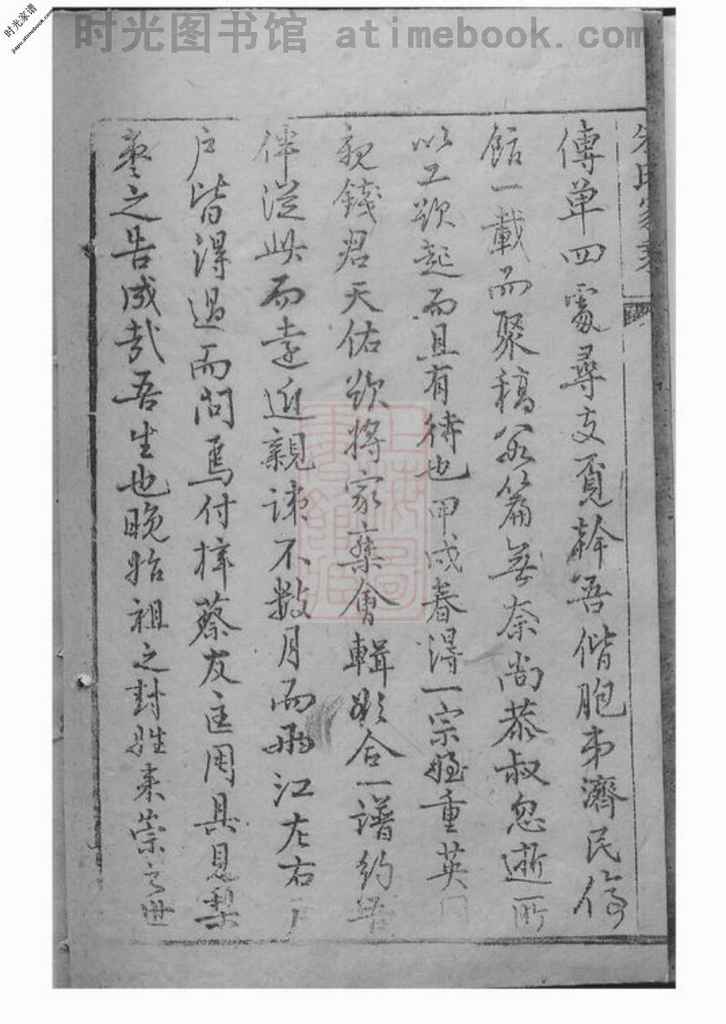 时光图书馆 atimebook.com
时光家谱
傳单四處尋支覓幹吾偕胞弟濟民停
館一載而聚稿公篇無奈尚恭叔忽逝所
以工欲起而且有待也甲戍春得一宗姪重英
親錢君天佑欲將家乘會輯欲合一譜約吾
伴從此而遠近親疎不数月而兩江左右
户皆得過而问焉付梓蔡友主用具見梨
棗之告成哉吾生也晚始祖之封姓来崇之世